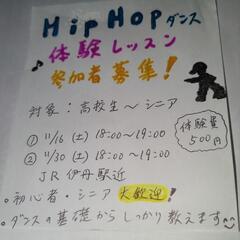 HipHopダンス
体験レッスン
参加者募集!
対象:高校生〜シニア
① 11/16(土) 18:00〜19:00
② 11/30(土) 18:00〜19:00
JR伊丹駅近
体験費
500円
・初心者・シニア大歓迎!
・ダンスの基礎からしっかり教えます